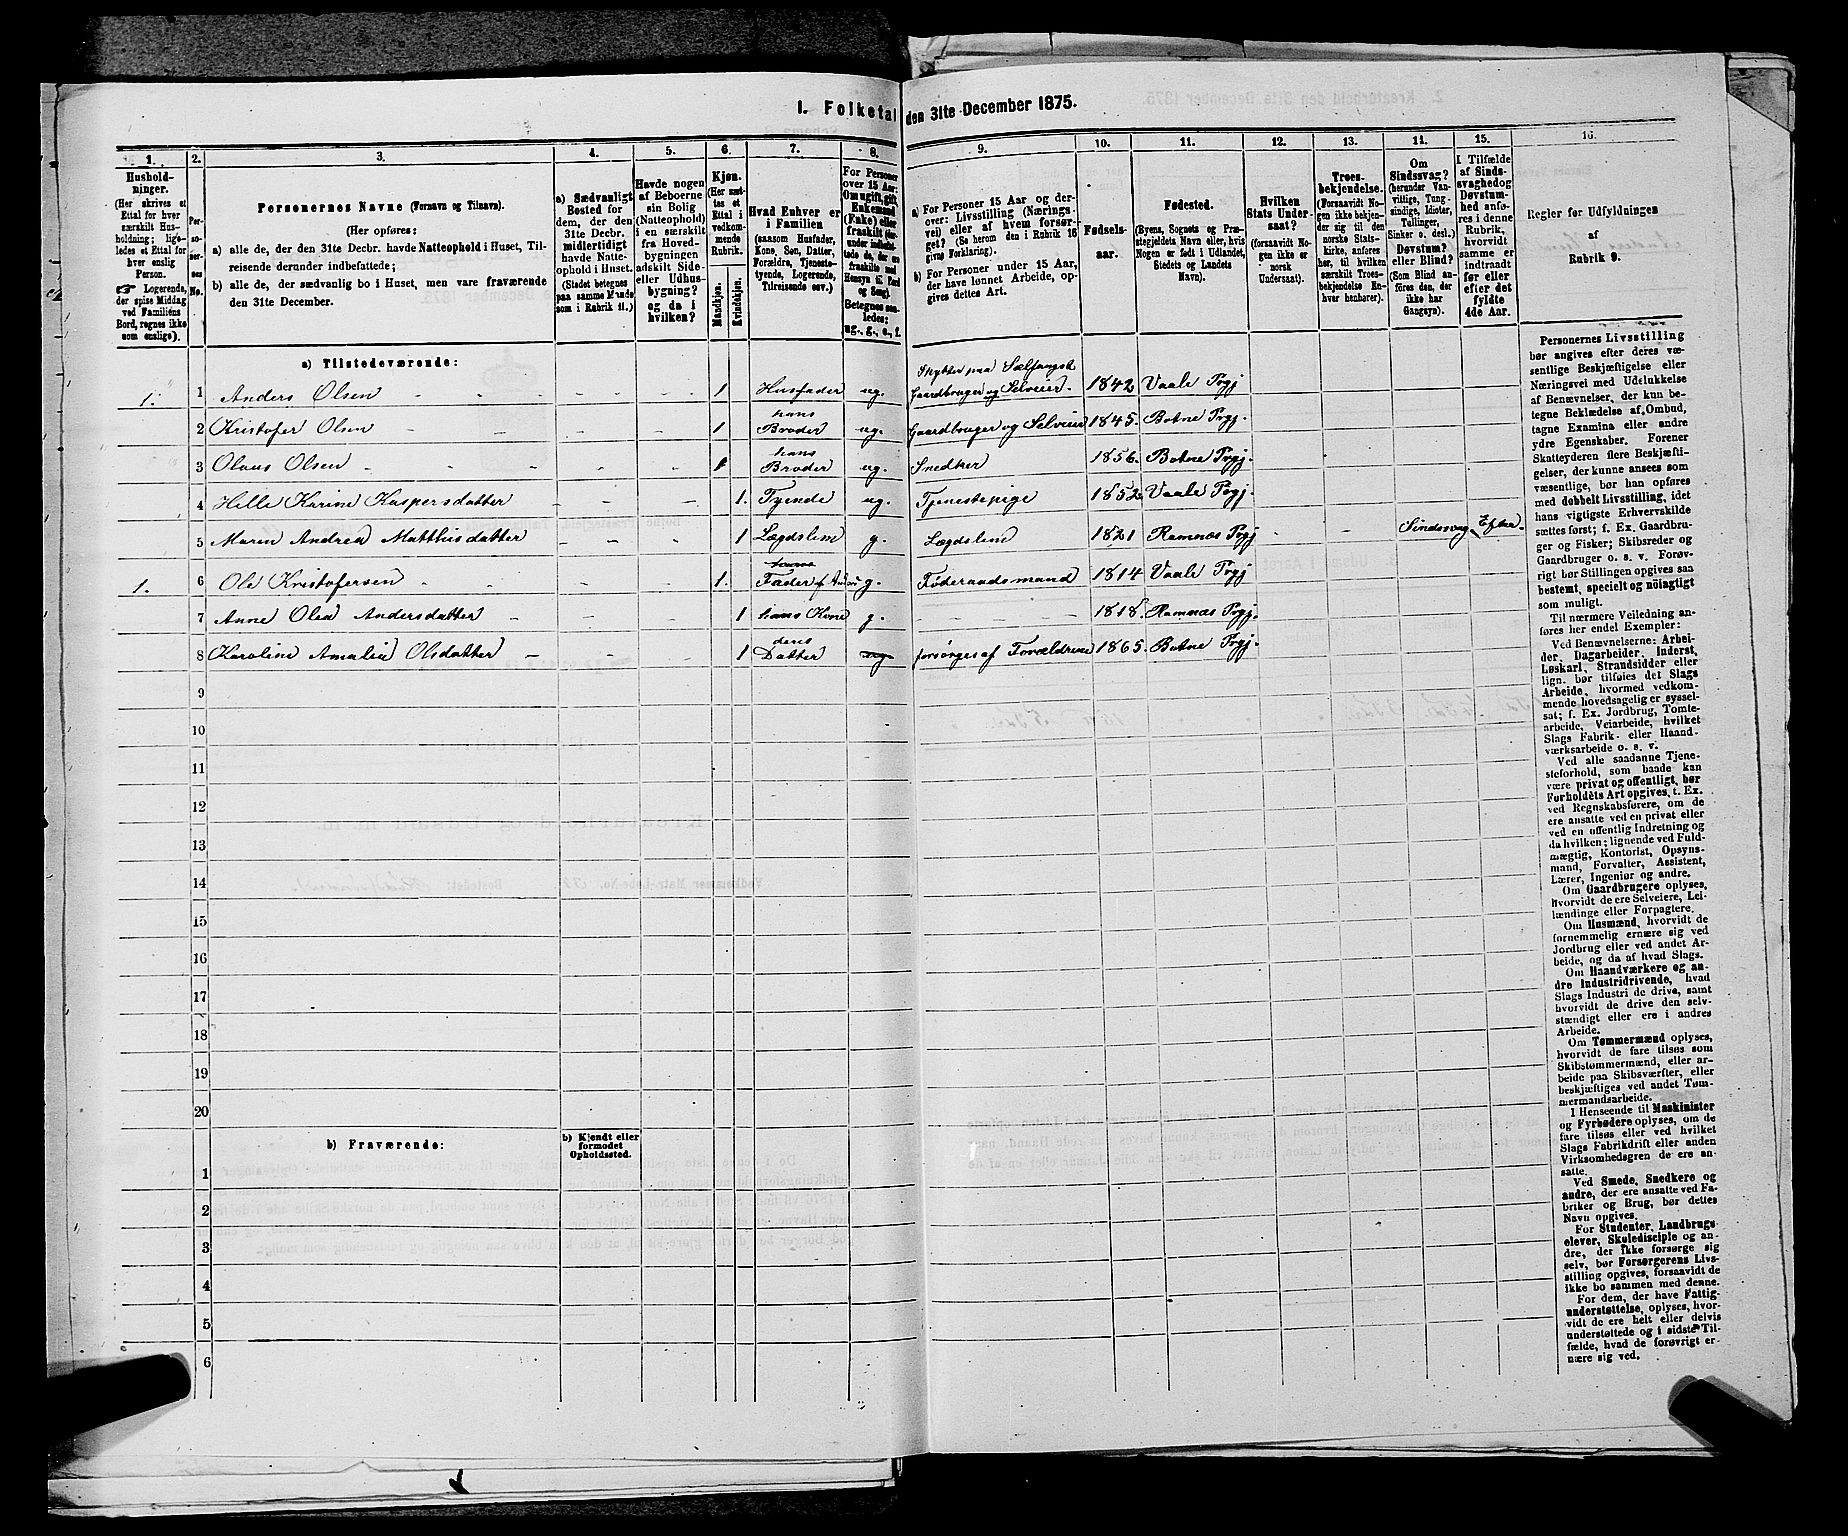 I. Folketal den 31te December 1875.
1. 2. 3. 4. 5. 6. 7. 8. 9. 10. 11. 12. 13. 14. 15. 16.
Husholdninger.
(Her skrives et
Ettal for hver
særskilt Husholdning;
ligeledes et Ettal for
hver enslig
Person.
☞ Logerende,
der spise Middag
ved Familiens
Bord, regnes ikke
som enslige).
Personernes No.
Personernes Navne (Fornavn og Tilnavn).
(Her opføres:
a) alle de, der den 31te Decbr. havde Natteophold i Huset, Tilreisende derunder indbefattede;
b) alle de, der sædvanlig bo i Huset, men vare fraværende
den 31te December.
a) Sædvanligt
Bosted for
dem, der den
31te Decbr.
midlertidigt
havde Natteophold i Huset.
(Stedet betegnes
paa samme Maade
som i Rubrik 11.)
Havde nogen
af Beboerne
sin Bolig
(Natteophold)
i en særskilt
fra Hovedbygningen
adskilt Side-
eller Udhusbygning?
og da i
hvilken?
Kjøn.
(Her sættes et
Ettal i
vedkommende
Rubrik.
Mandkjøn.
Kvindekjøn.
Hvad Enhver er
i Familien
(saasom Husfader,
Kone, Søn, Datter,
Forældre, Tjenestetyende, Logerende,
Tilreisende osv.)
For Personer
over 15 Aar:
Om ugift, gift,
Enkemand
(Enke) eller
fraskilt
Betegnes saaledes:
ug., g., e., f.
a) For Personer 15 Aar og derover: Livsstilling (Næringsvei) eller af hvem forsørget? (Se herom den i Rubrik 16
givne Forklaring).
b) For Personer under 15 Aar,
der have lønnet Arbeide, opgives dettes Art.
Fødselsaar.
Fødested.
(Byens, Sognets og Præstegjeldets Navn eller, hvis
Nogen er født i Udlandet,
Stedets og Landets
Navn).
Hvilken
Stats Undersaat?
(forsaavidt Nogen ikke er
norsk
Undersaat).
Troesbekjendelse.
(Forsaavidt Nogen ikke bekjender sig til den
norske Statskirke, anføres
her, til hvilken
særskilt Troesbekjendelse Enhver henhører).
Om
Sindssvag?
(herunder Vanvittige, Tungsindige, Idioter,
Tullinger,
Sinker o. desl.)
Døvstum?
eller Blind?
(Som Blind anføres den, der
ikke har
Gangsyn).
I Tilfælde
af Sindssvaghed og
Døvstumhed anføres i denne
Rubrik,
hvorvidt
samme er
indtraadt
før eller
efter det
fyldte
4de Aar.
Regler for Udfyldningen
af
Rubrik 9.
a) Tilstedeværende:
1. 1 Anders Olsen 1 Husfader ug. Skytter paa Sælfangst Gaardbruger og Selveier. 1842 Vaale Prgj
2 Kristofer Olsen 1 hans Broder ug. Gaardbruger og Selveier 1845. Botne Prgj.
3 Olaus Olsen 1 hans Broder ug. Snedker 1856. Botne Prgj.
4 Helle Karine Kaspersdatter 1. Tyende ug. Tjenestepige 1852 Vaale Prgj.
5 Maren Andrea Matthisdatter 1 Lægdslem g. Lægdslem 1821 Ramnæs Prgj Sindssvag Efter.
1. 6 Ole Kristofersen 1. Fader af g. Føderaadsmand 1814 Vaale Prgj
7 Anne Olea Andersdatter 1 hans Kone g. 1818. Ramnæs Prgj.
8 Karoline Amalie Olsdatter 1 deres Datter ug forsørges af Forældrene 1865. Botne Prgj.
9
10
11
12
13
14
15
16
17
18
19
20
b) Fraværende:
b) Kjendt eller
formodet
Opholdssted.
1
2
3
4
5
6
Personernes Livsstilling
bør angives efter deres væsentlige Beskjæftigelse eller
Næringsvei med Udelukkelse
af Benævnelser, der kun betegne Beklædelse af Ombud,
tagne Examina eller andre
ydre Egenskaber. Forener
Skatteyderen flere Beskjæftigelser, der kunne ansees som
væsentlige, bør han opføres
med dobbelt Livsstilling, idet
hans vigtigste Erhvervskilde
sættes først; f. Ex. Gaardbruger og Fisker; Skibsreder og
Gaardbruger o. s. v. Forøvrigt bør Stillingen opgives saa
bestemt, specielt og nøiagtigt
som muligt.
Til nærmere Veiledning anføres her endel Exempler:
Ved Benævnelserne: Arbeider, Dagarbeider, Inderst,
Løskarl, Strandsidder eller
lign. bør tilføies det Slags
Arbeide, hvormed vedkommende hovedsagelig er sysselsat; f. Ex. Jordbrug, Tomtearbeide, Veiarbeide, hvilket
Slags Fabrik- eller Haandværksarbeide o. s. v.
Ved alle saadanne Tjenesteforhold, som baade kan
være privat og offentligt, bør
Forholdets Art opgives, t. Ex.
ved Regnskabsførere, om de
ere ansatte ved en privat eller
ved en offentlig Indretning og
da hvilken; lignende ved Fuldmægtig, Kontorist, Opsynsmand, Forvalter, Assistent,
Lærer, Ingeniør og andre.
Om Gaardbrugere oplyses,
hvorvidt de ere Selveiere, Leilændinge eller Forpagtere.
Om Husmænd, hvorvidt de
fornemmelig ernære sig ved
Jordbrug eller ved andet Arbeide, og da af hvad Slags.
Om Haandværkere og andre Industridrivende, hvad
Slags Industri de drive, samt
hvorvidt de drive den selvstændigt eller ere i andres
Arbeide.
Om Tømmermænd oplyses,
hvorvidt de fare tilsøs som
Skibstømmermænd, eller arbeide paa Skibsværfter, eller
beskjæftiges ved andet Tømmermandsarbeide.
I Henseende til Maskinister
og Fyrbødere oplyses, om de
fare tilsøs eller ved hvilket
Slags Fabrikdrift eller anden
Virksomhedsgren de ere ansatte.
Ved Smede, Snedkere og
andre, der ere ansatte ved Fabriker og Brug, bør dettes
Navn opgives.
For Studenter, Landbrugselever, Skoledisciple og andre, der ikke forsørge sig
selv, bør Forsørgerens Livsstilling opgives, forsaavidt de
ikke bo sammen med denne.
For dem, der have Fattigunderstøttelse, oplyses, hvorvidt de ere helt eller delvis
understøttede og i sidste Tilfælde, hvad de forøvrigt ernære sig ved.